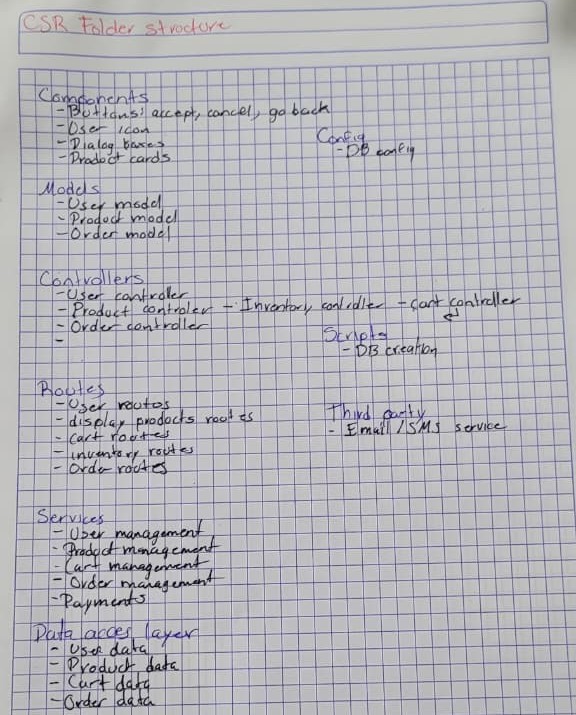 CSR Folder structure
Components
- Buttons: accept, cancel, go back
- User icon
- Dialog boxes
- Product cards
Config
- DB config
Models
- User model
- Product model
- Order model
Controllers
- User controller
- Product controler - Inventory controller - Cart controller
- Order controller
-
Scripts
- DB creation
Routes
- User routes
- display products routes
- Cart routes
- inventory routes
- Order routes
Third party
- Email / SMS service
Services
- User management
- Product management
- Cart management
- Order management
- Payments
Data acces layer
- User data
- Product data
- Cart data
- Order data